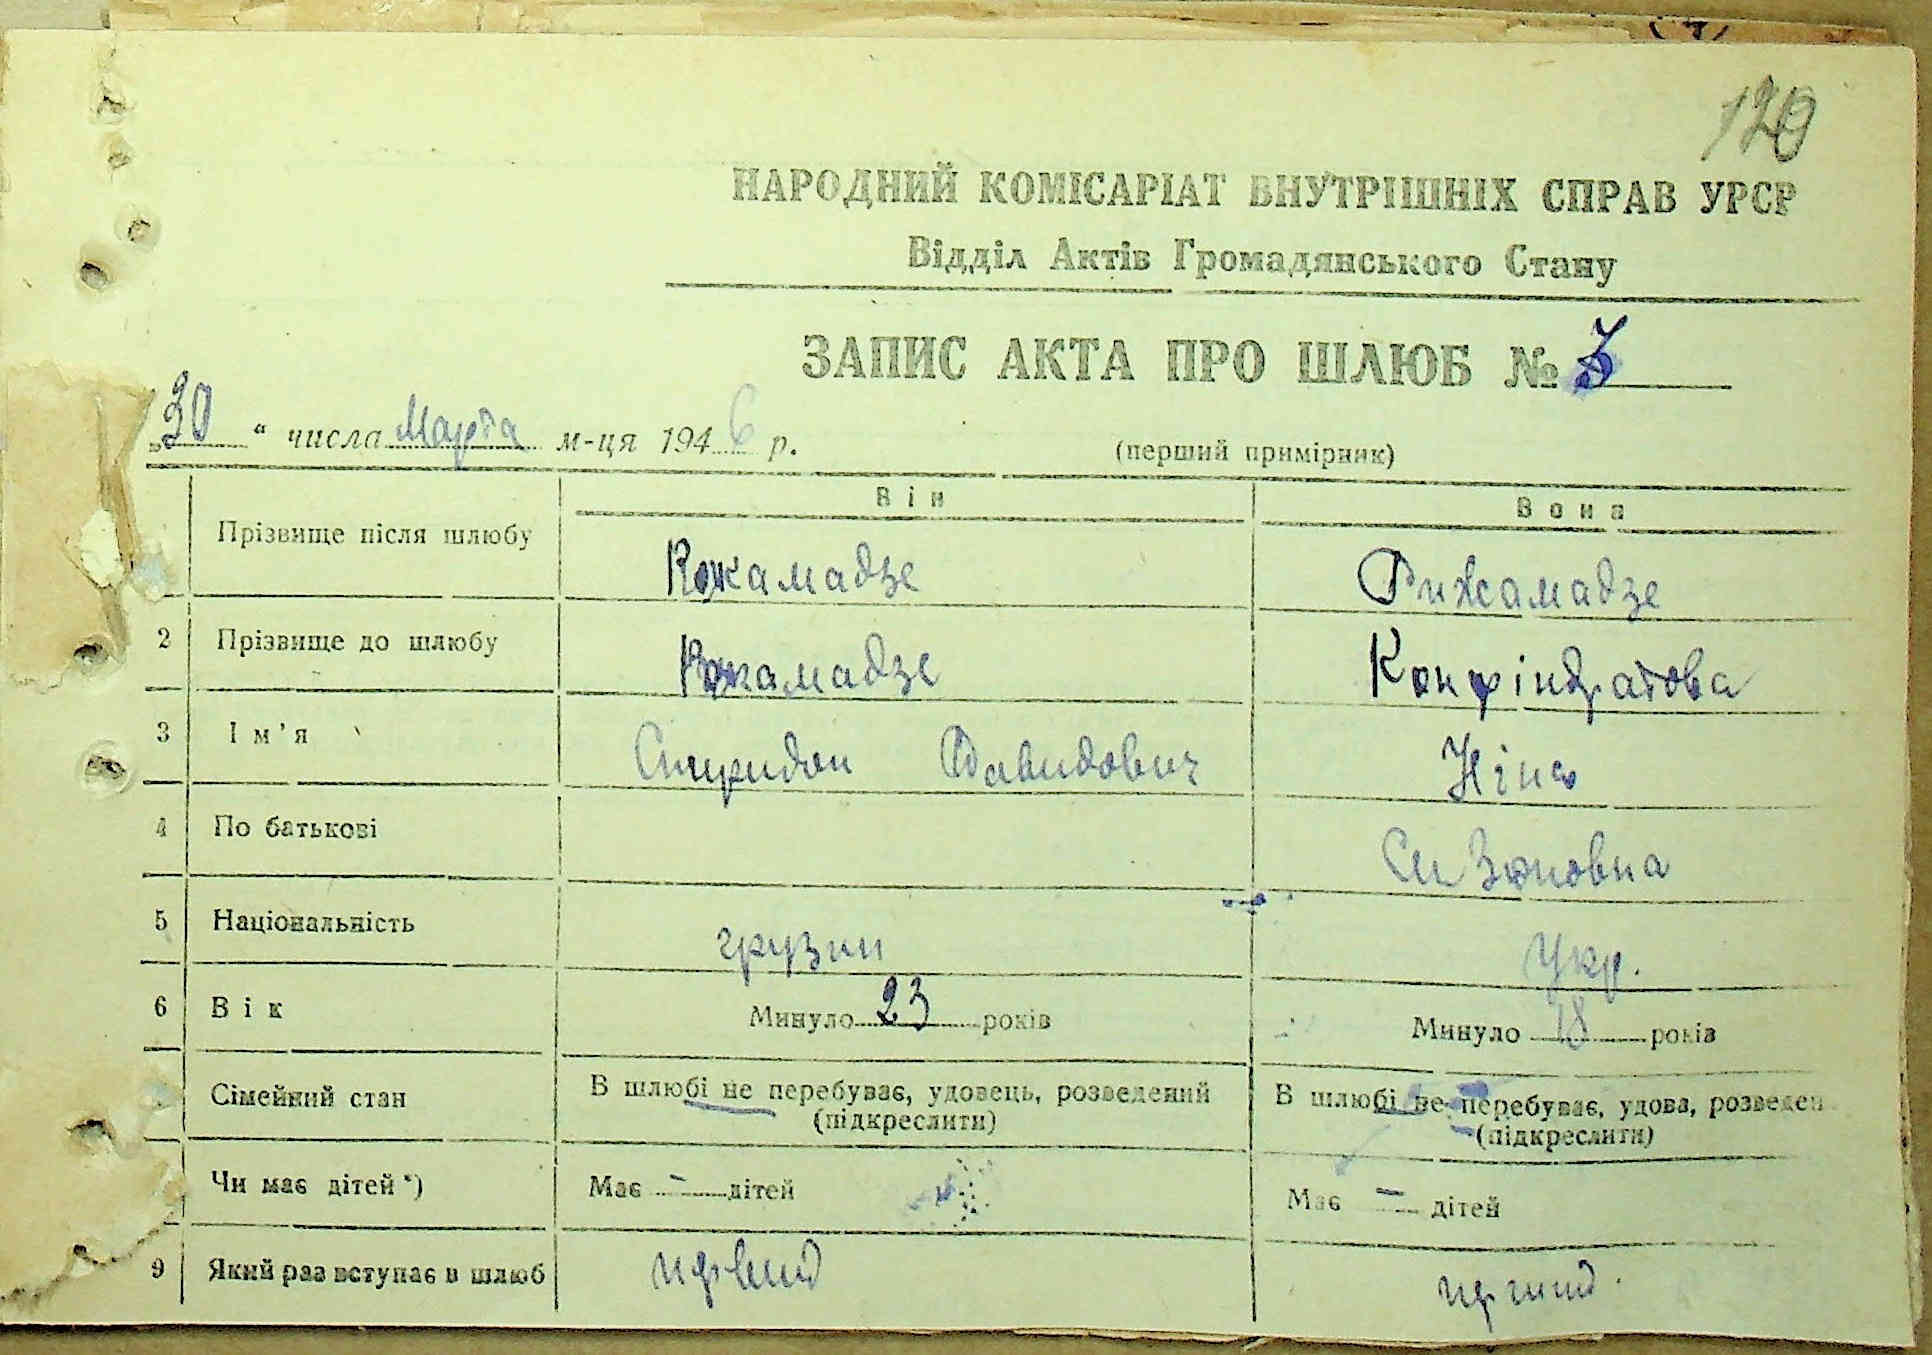 129
НАРОДНИЙ КОМІСАРІАТ ВНУТРІШНІХ СПРАВ УРСР
Відділ Актів Громадянського Стану
ЗАПИС АКТА ПРО ШЛЮБ №
„30“ числа Марта м-ця 1946 р.
(перший примірник)
Він Вона
Прізвище після шлюбу Рижамадзе
2 Прізвище до шлюбу
3 Ім'я Спиридон Давидович Ніна
4 По батькові СиЗоновна
5 Національність грузин Укр.
6 Вік Минуло 23 років Минуло 18 років
Сімейний стан В шлюбі не перебуває, удовець, розведений В шлюбі не перебуває, удова, розведен
(підкреслити) (підкреслити)
Чи має дітей*) Має – дітей Має – дітей
9 Який раз вступає в шлюб